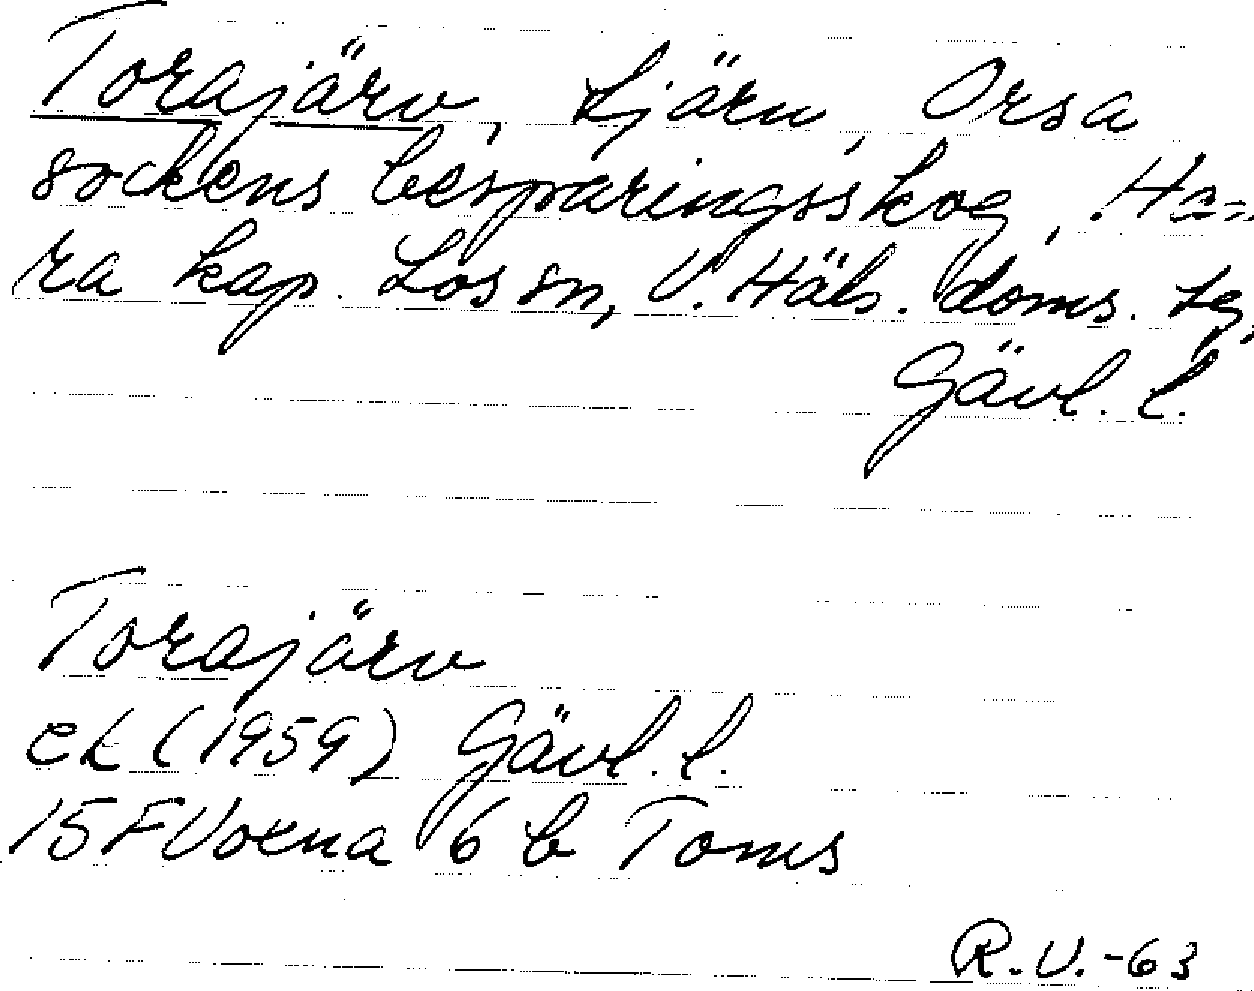 Torajärv, tjärn, Orsa
sockens besparingsskog, Ham-
ra kap. Los sn, V. Häls. doms. tg,
Gävl. l.
Torajärv
ek (1959) Gävl. l.
15F Voxna 6 b Toms
R.V.-63